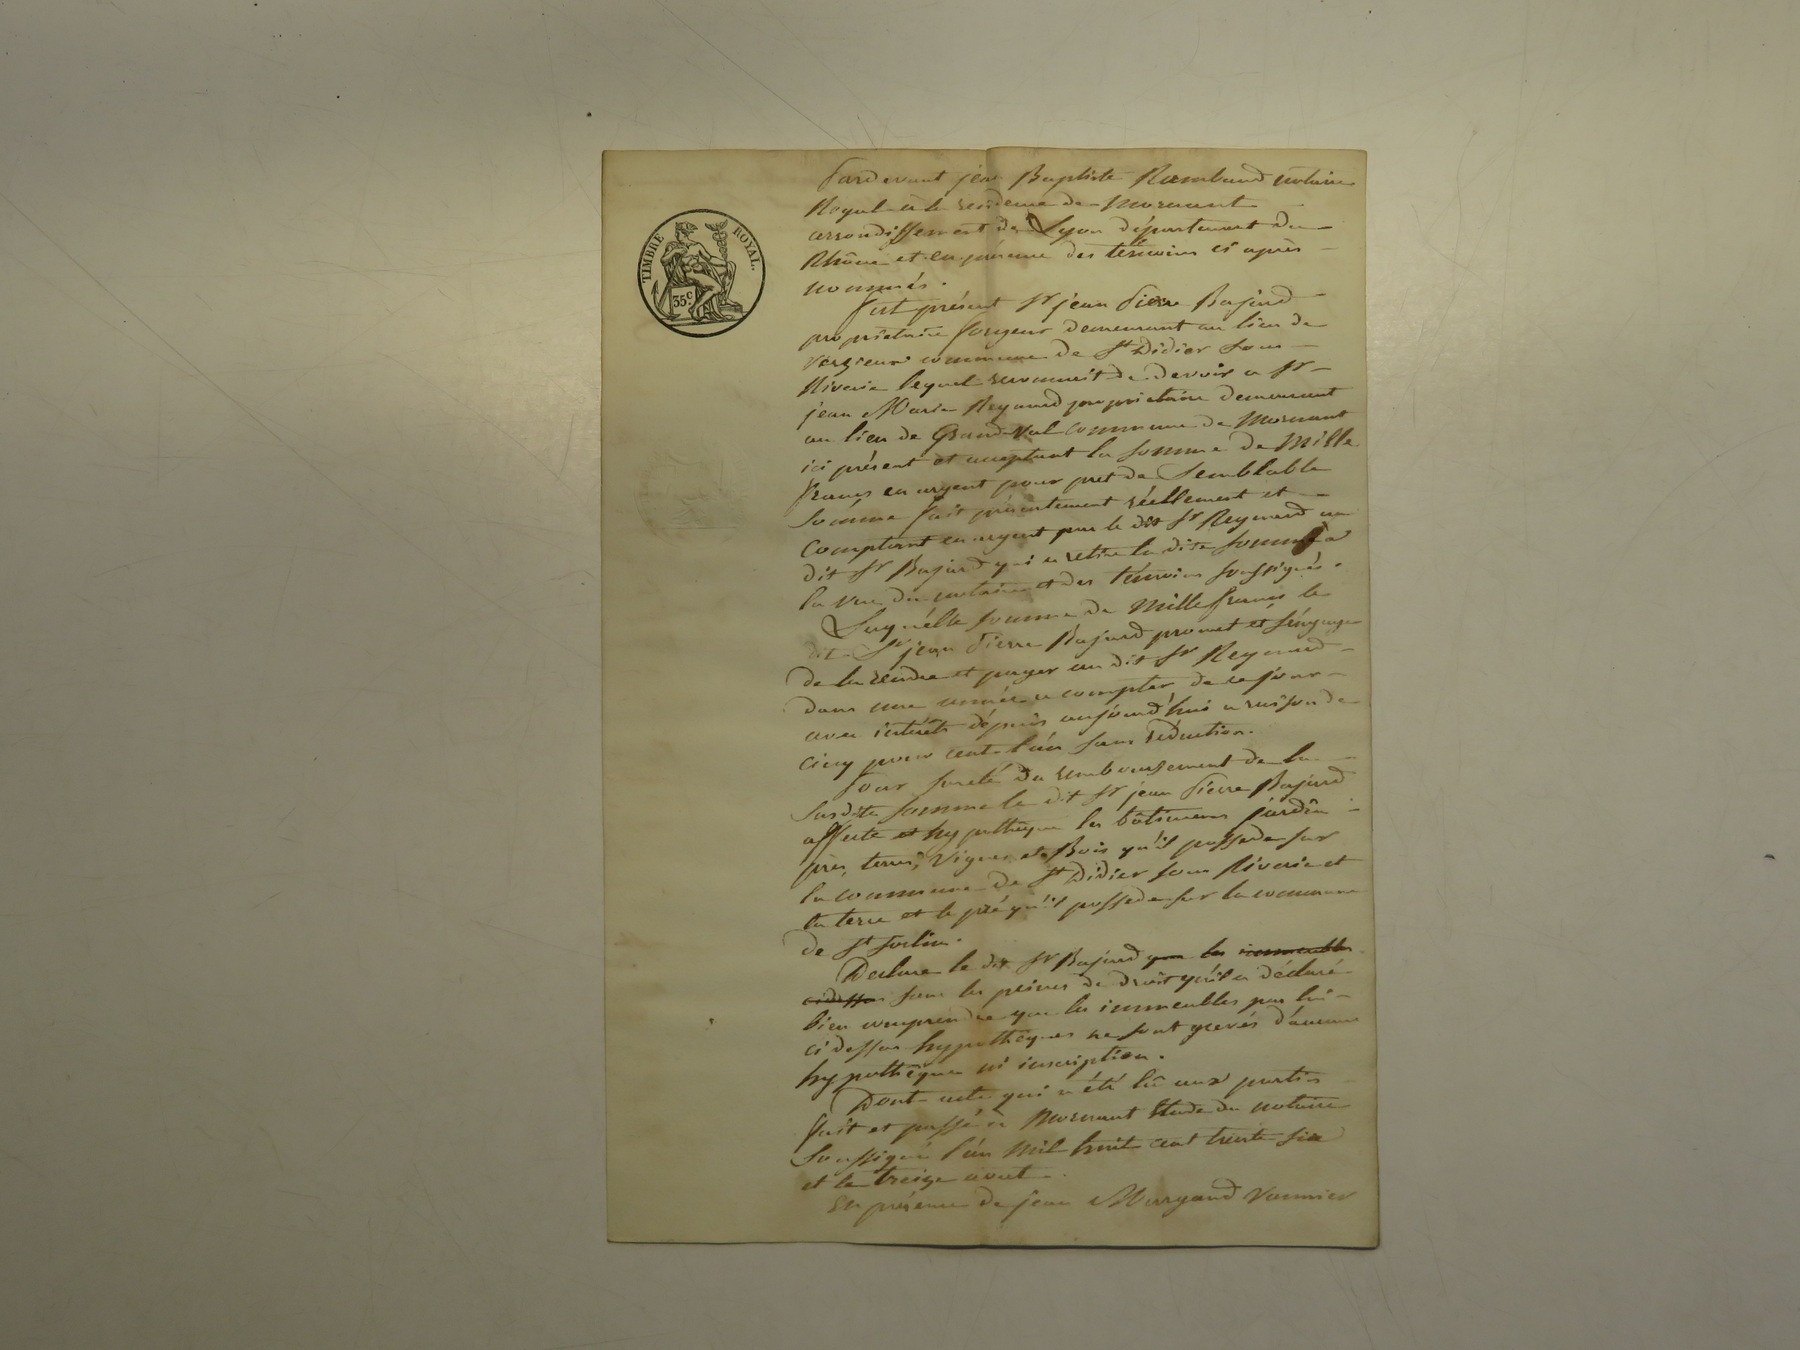 TIMBRE ROYAL.
35c.
Pardevant jean Baptiste Rambaud notaire
Royal a la residence de Mornant
arrondissement de Lyon département du
Rhône et en présence des témoins ci après
nommés.
fut présent Sr jean Pierre Bajard
propriétaire forgeur demeurant au lieu de
commune de St Didier sous
Riverie lequel reconnait de devoir a Sr
jean Marie Reynard propriétaire demeurant
au lieu de Grand Val commune de Mornant
ici présent et acceptant la somme de Mille
francs en argent pour pret de Semblable
Somme fait présentement réellement et
Comptant en argent par le dit Sr Reynard au
dit Sr Bajard qui a retiré la dite somme a
la vue du notaire et des témoins soussignés.
Laquélle somme de Mille francs le
dit Sr jean Pierre Bajard promet et s'éngage
de la rendre et payer au dit Sr Reynard
dans une année a compter de ce jour
avec intérêts dépuis aujourd'hui a raison de
cinq pour cent l'an sans réduction.
Pour sureté du remboursement de la
Susdite somme le dit Sr jean Pierre Bajard
affecte et hypothèque les bâtiments jardin
près, terres, Vignes et Bois qu'il possede sur
la commune de St Didier sous Riverie et
la terre et le pré qu'il possede sur la commune
de St Sorlin.
Declare le dit Sr Bajard que les immeubles
cidessus sous les peines de droit qu'il a déclaré
bien comprendre que les immeubles par lui
ci dessus hypothéqués ne sont grevés d'aucune
hypothêque ni inscription.
Dont acte qui a été lû aux parties
fait et passé a Mornant Etude du notaire
Soussigné l'an Mil huit cent trente six
et le treize aout.
En présence de jean Margand Vannier